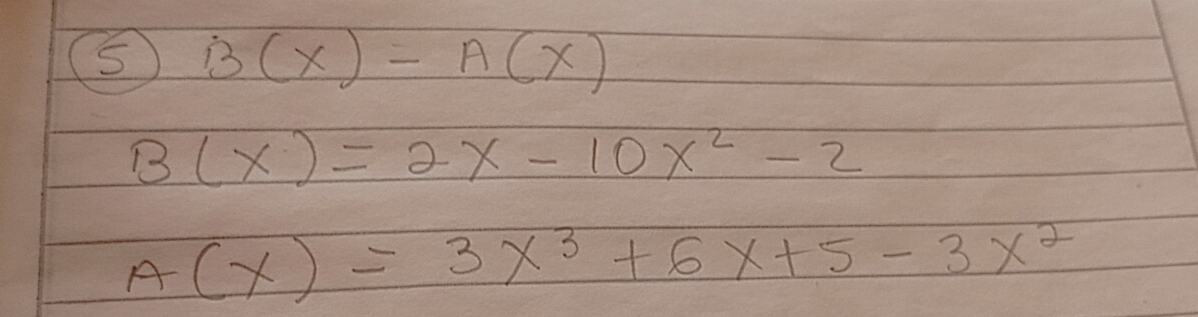 ⑤ B(X) - A(X)
B(X) = 2X - 10X² - 2
A(X) = 3X³ + 6X + 5 - 3X²